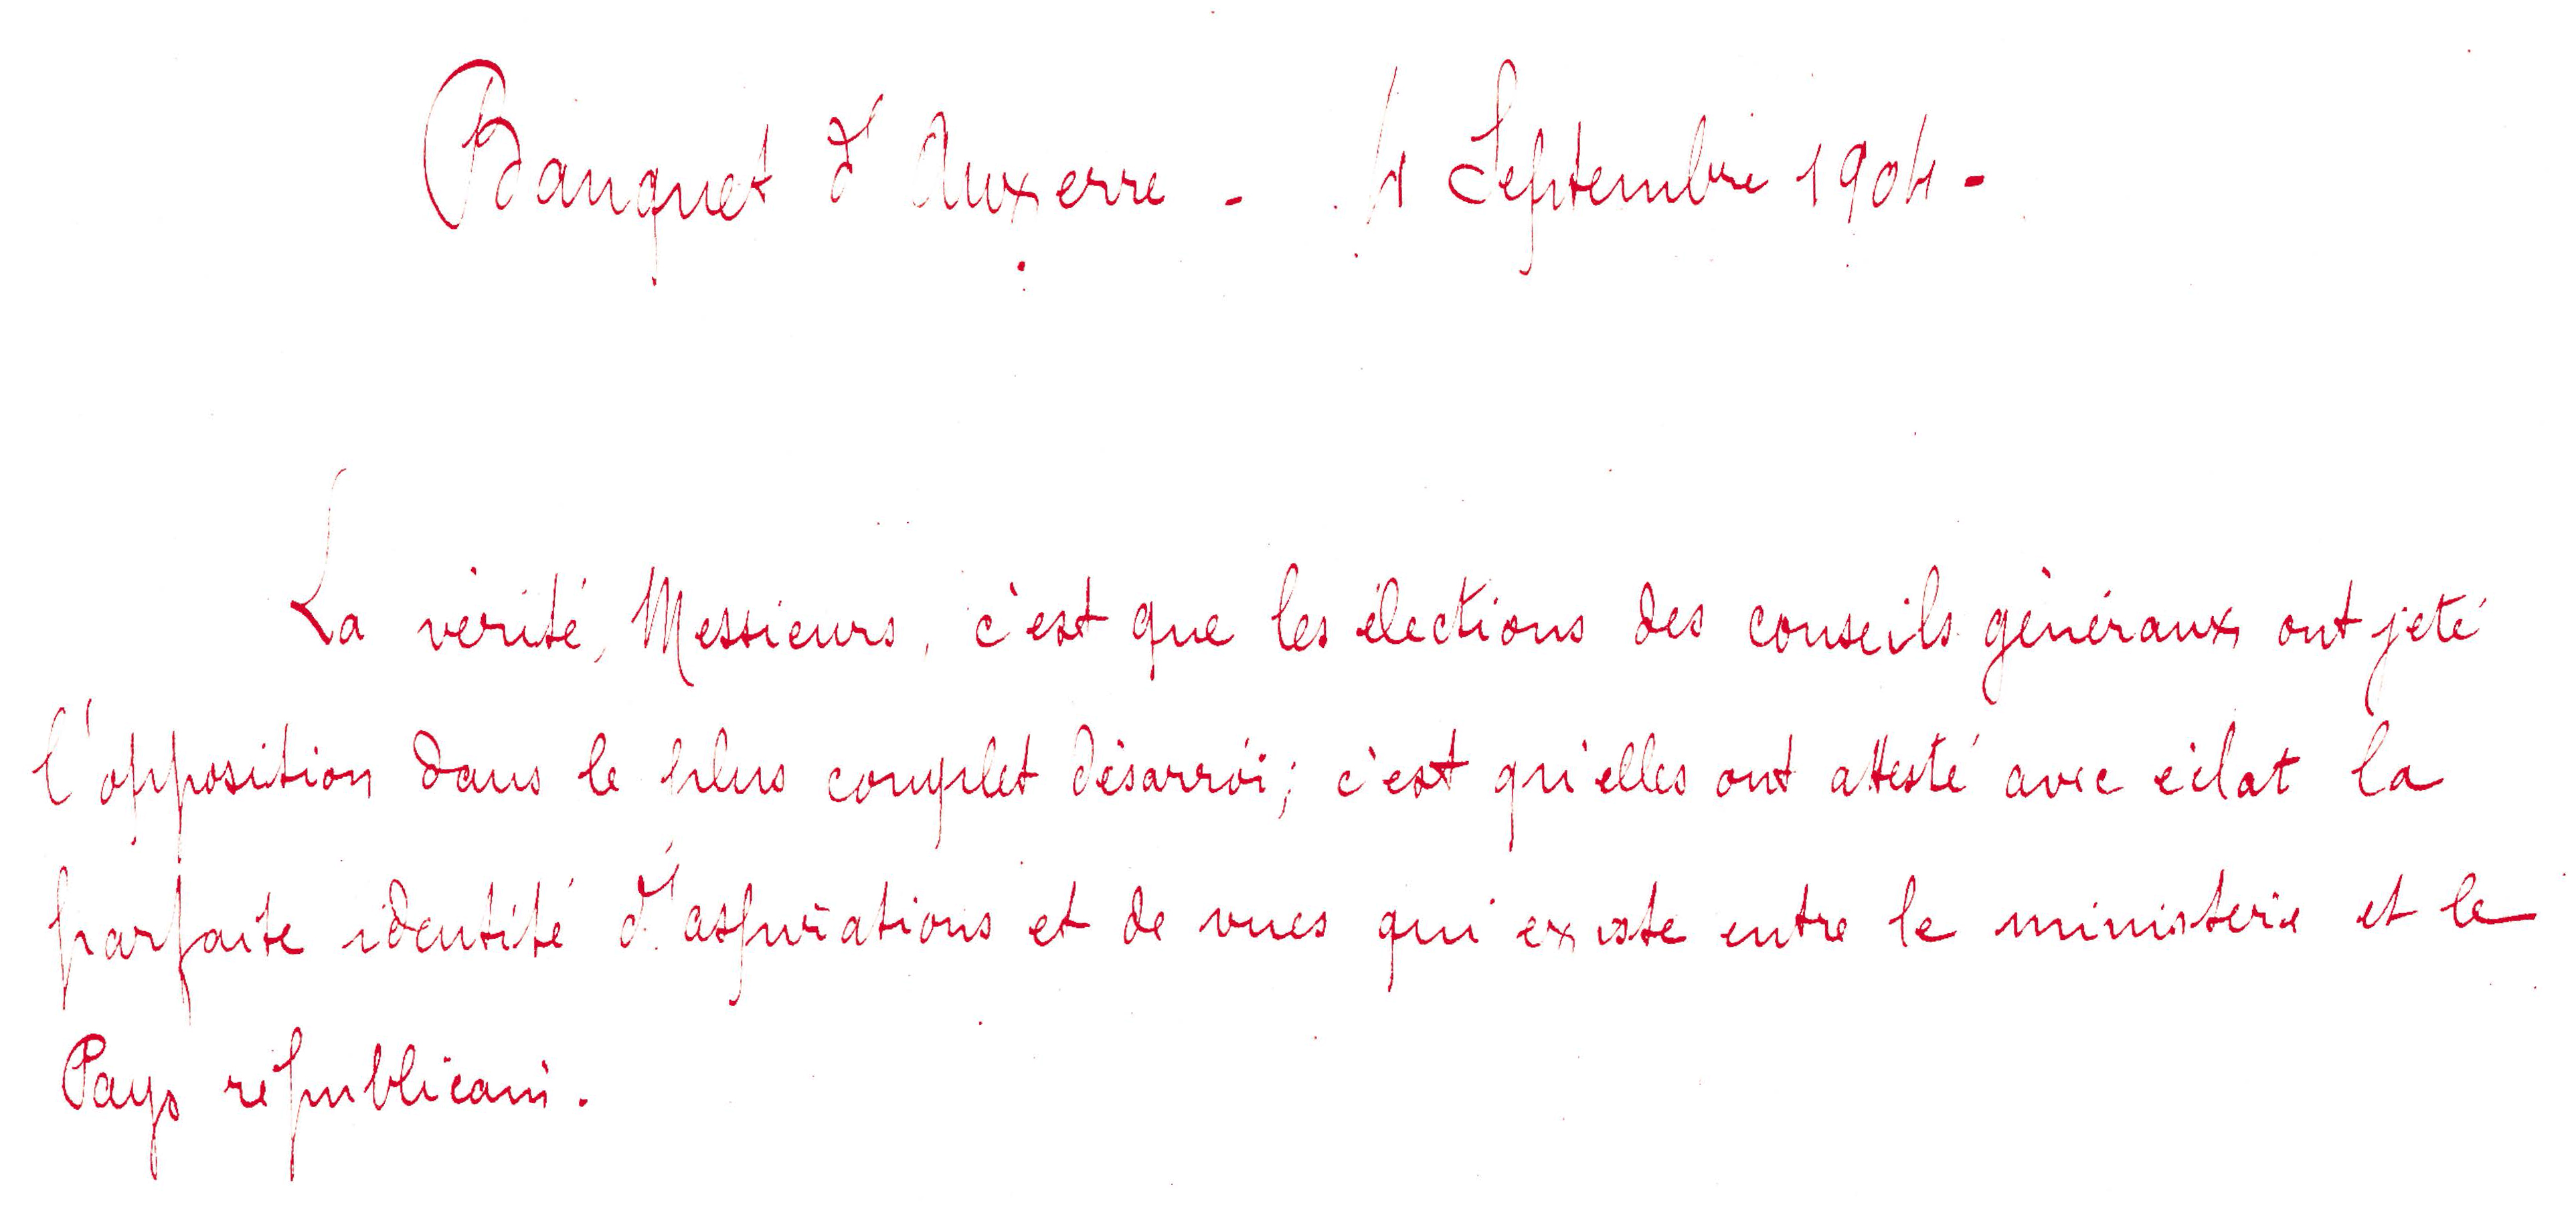 Banquet d'Auxerre - 4 Septembre 1904 -
La vérité, Messieurs, c'est que les élections des conseils généraux ont jeté
l'opposition dans le plus complet désarroi; c'est qu'elles ont attesté avec éclat la
parfaite identité d'aspirations et de vues qui existe entre le ministère et le
Pays républicain.